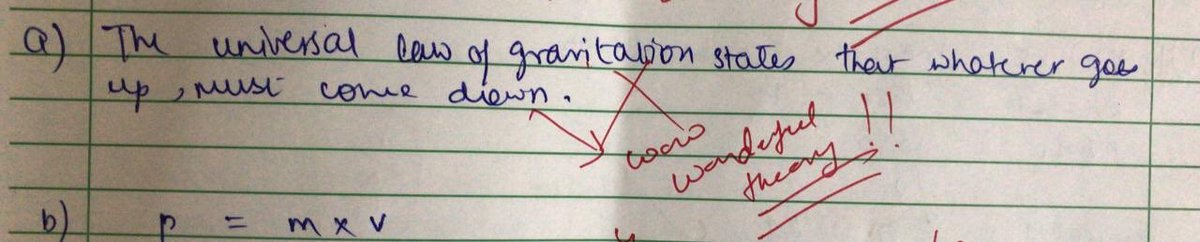 a) The universal law of gravitation states that whatever goes
up, must come down.
wow
wonderful
theory !!
b) p = m x v